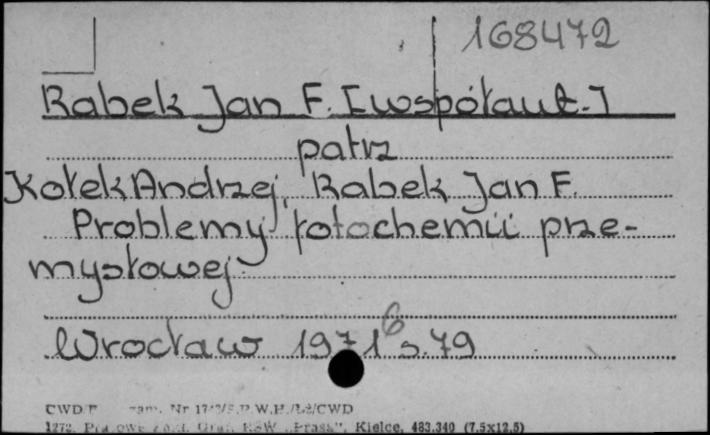 168472
Rabek Jan F. [współaut.]
patrz
Kołek Andrzej, Rabek Jan F.
Problemy fotochemii prze-
mysłowej
Wrocław 1971 6 s. 79
CWD Nr W.H./Łż/CWD
RSW „Prasa", Kielce, 483.340 (7.5x12.5)